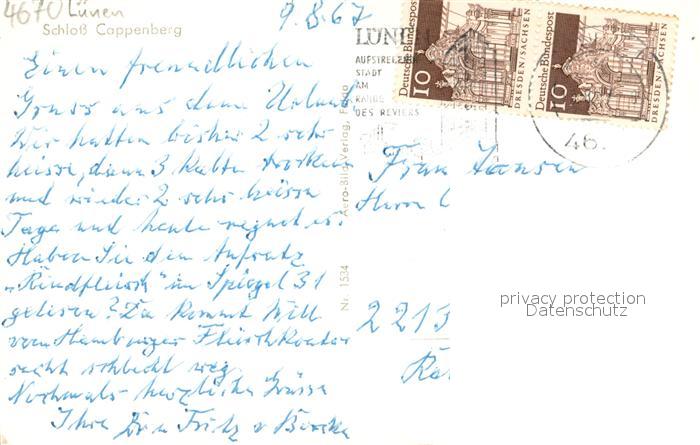 4670 Lünen
Schloß Cappenberg
9.8.67
Einen freundlichen
Gruss aus dem Urlaub
Wir hatten bisher 2 sehr
heisse, dann 3 kalte trockene
und wieder 2 sehr heisse
Tage und heute regnet es.
Haben Sie den Aufsatz
"Rindfleisch" im Spiegel 31
gelesen? Da kommt Will
vom Hamburger Fleischkontor
recht schlecht weg.
Nochmals herzliche Grüsse
Ihre Fritz
Aero-Bild-Verlag, Fulda
Nr. 1534
LÜNEN
AUFSTREBENDE
STADT
AM
RANDE
DES REVIERS
46.
Deutsche Bundespost
10
DRESDEN/SACHSEN
Deutsche Bundespost
10
DRESDEN/SACHSEN
Frau Jansen
Herrn
2213
privacy protection
Datenschutz